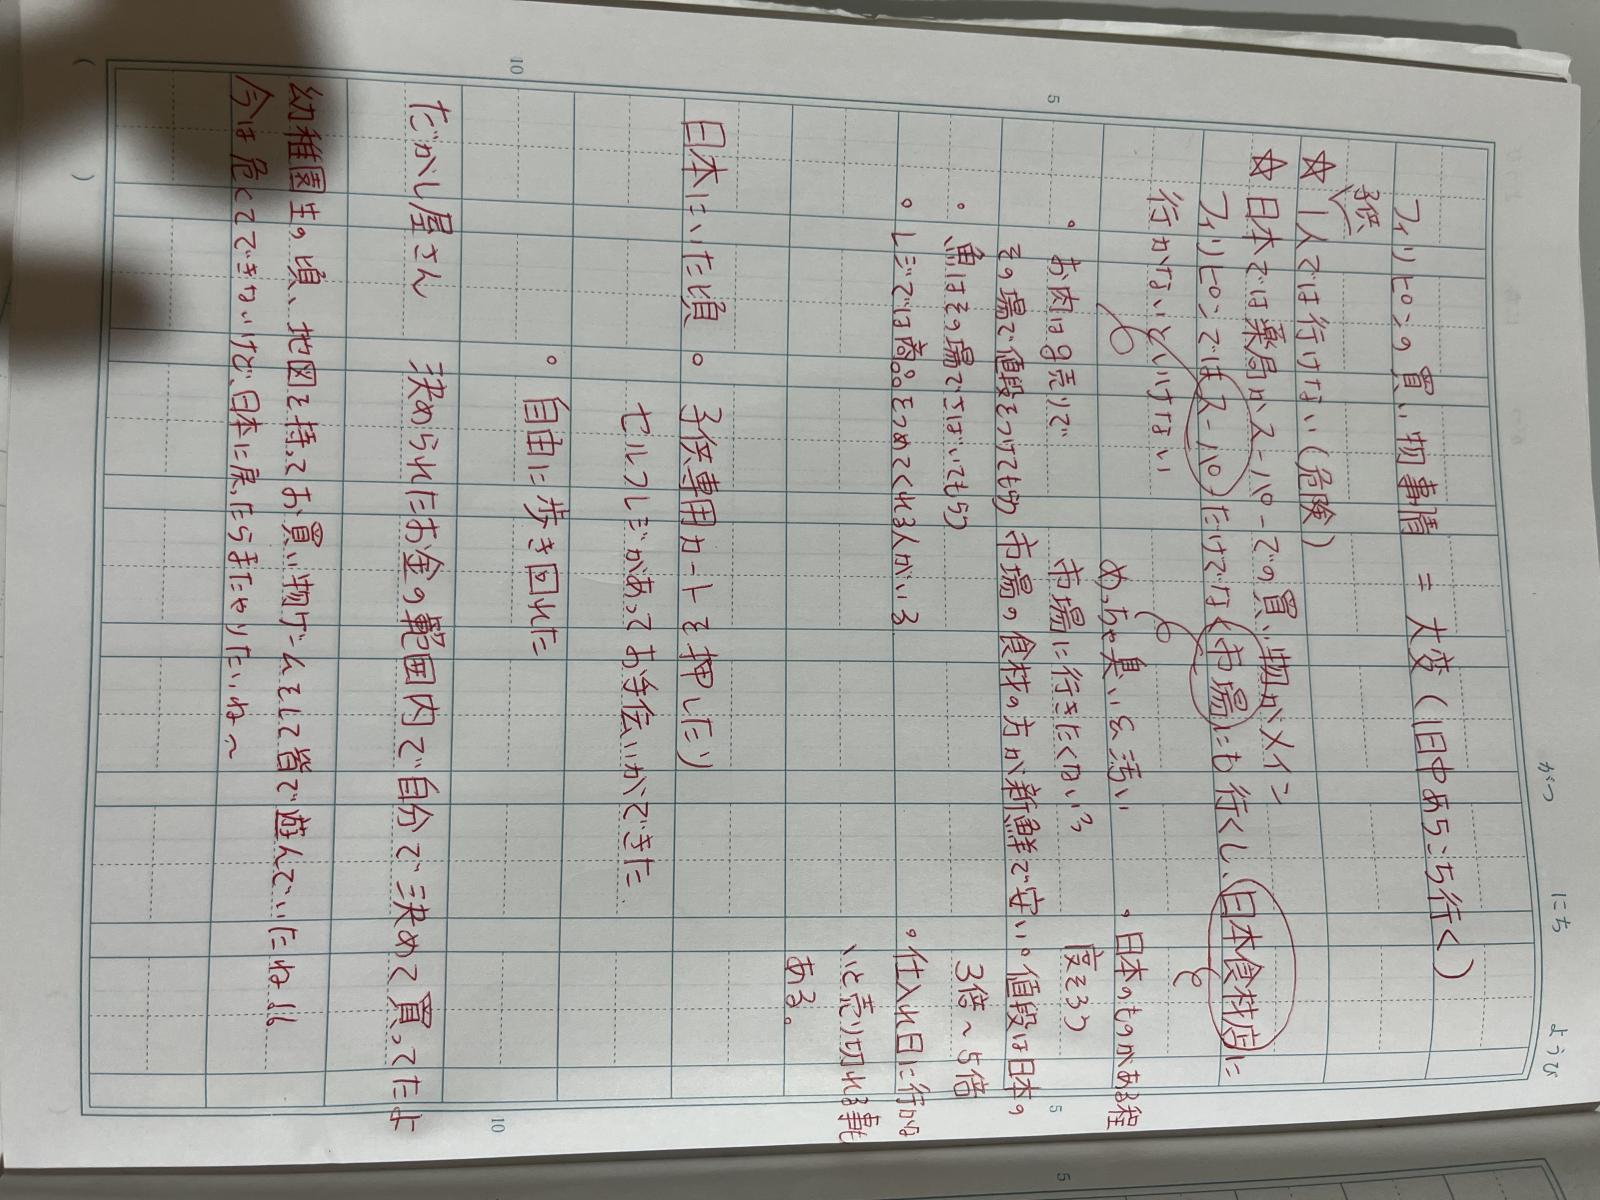 がつ にち ようび
フィリピンの買い物事情 = 大変(1日中あちこち行く)
子供
☆ 1人では行けない(危険)
☆ 日本では薬局かスーパーでの買い物がメイン
フィリピンではスーパーだけでなく市場にも行くし、日本食材店に
行かないといけない
めっちゃ臭いし汚い
市場に行きたくない
。日本のものがある程
度そろう
。お肉は量り売りで
その場で値段をつけてもらう
市場の食材の方が新鮮で安い
。値段は日本の
3倍〜5倍
。魚はその場でさばいてもらう
。レジでは商品をつめてくれる人がいる
。仕入れ日に行かな
いと売り切れる事も
ある。
日本にいた頃 。子供専用カートを押したり
セルフレジがあってお手伝いができた
。自由に歩き回れた
だがし屋さん 決められたお金の範囲内で自分で決めて買ってたよ
幼稚園生の頃、地図を持ってお買い物ゲームをして皆で遊んでいたね!!
今は危くてできないけど、日本に戻ったらまたやりたいね〜
5
10
5
10
5